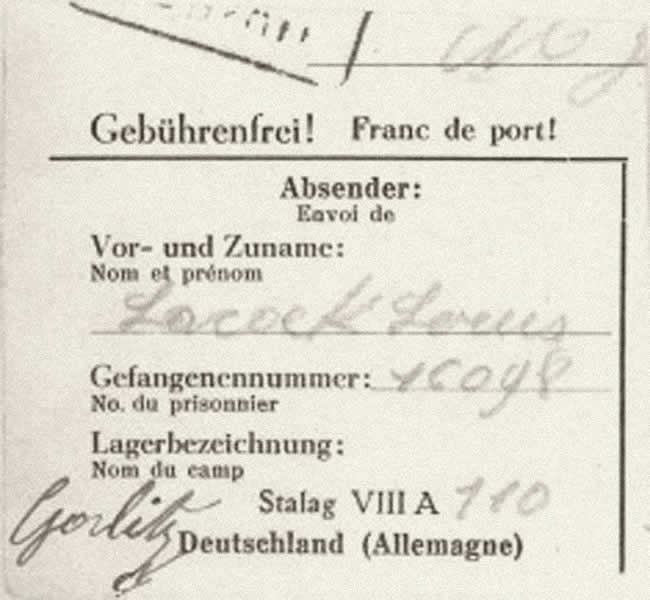 Gebührenfrei! Franc de port!
Absender:
Envoi de
Vor- und Zuname:
Nom et prénom
Lacock Louis
Gefangenennummer: 16098
No. du prisonnier
Lagerbezeichnung:
Nom du camp
Stalag VIII A 110
Gorlitz Deutschland (Allemagne)